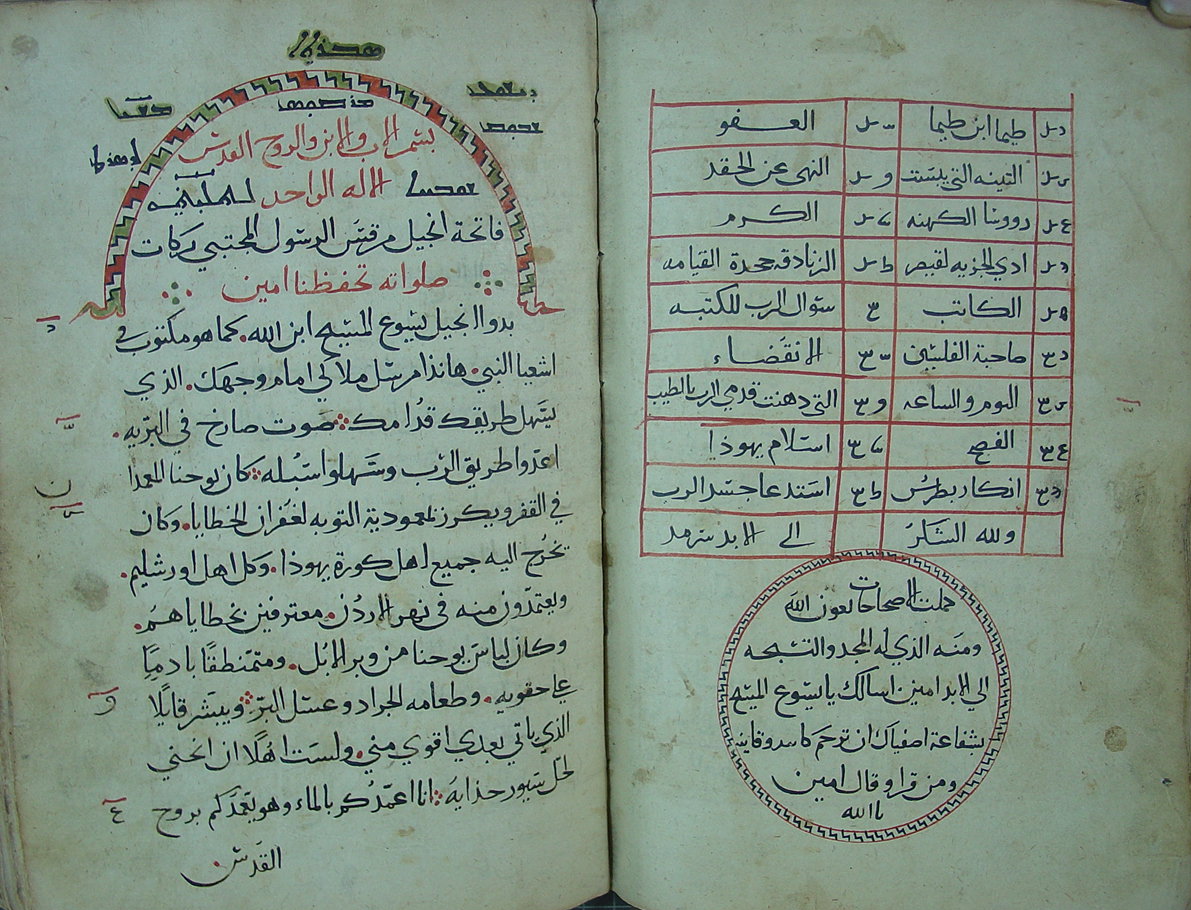 طيما ابن طيما العفو
التينه التي يبست النهي عن الحقد
رووسا الكهنه الكرم
ادي الجزيه لقيصر الزنادقه جحدة القيامه
الكاتب سوال الرب للكتبه
صاحبة الفلسين الانقضاء
اليوم والساعه التي دهنت قدمي الرب بالطيب
الفصح استلام يهوذا
انكار بطرس استدعا جسد الرب
ولله الشكر الى الابد سرمد
كملت الاصحاحات بعون الله
ومنه الذي له المجد والتسبحه
الي الابد امين اسالك يا يسوع المسيح
بشفاعة اصفياك ان ترحم كاسه وقانيه
ومن قرا وقال امين
يا الله
بسم الاب والابن والروح القدس
الاله الواحد
فاتحة انجيل مرقس الرسول المجتبي بركات
صلواته تحفظنا امين
بدو انجيل يسوع المسيح ابن الله. كما هو مكتوب في
اشعيا النبي. هانذا مرسل ملاكي امام وجهك. الذي
يسهل طريقك قدامك صوت صارخ في البريه.
اعدوا طريق الرب وسهلوا سبله كان يوحنا المعمدا
في القفر ويكرز بمعمودية التوبه لغفران الخطايا. وكان
يخرج اليه جميع اهل كورة يهوذا. وكل اهل اورشليم.
ويعتمدون منه في نهر الاردن. معترفين بخطاياهم.
وكان لباس يوحنا من وبر الابل. ومتمنطقا بادم
علي حقويه. وطعامه الجراد وعسل البر ويبشر قايلا
الذي ياتي بعدي اقوي مني. ولست اهلا ان انحني
لحل سيور حذايه انا اعمدكم بالماء وهو يعمدكم بروح
القدس.